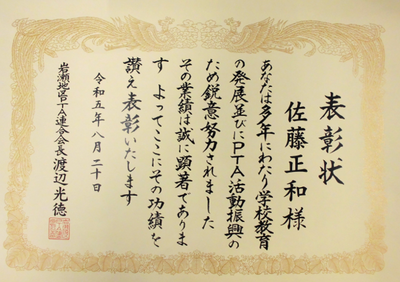 表彰状
佐藤正和様
あなたは多年にわたり学校教育
の発展並びにPTA活動振興の
ため鋭意努力されました
その業績は誠に顕著でありま
す よってここにその功績を
讃え表彰いたします
令和五年八月二十日
岩瀬地区PTA連合会長 渡辺光徳